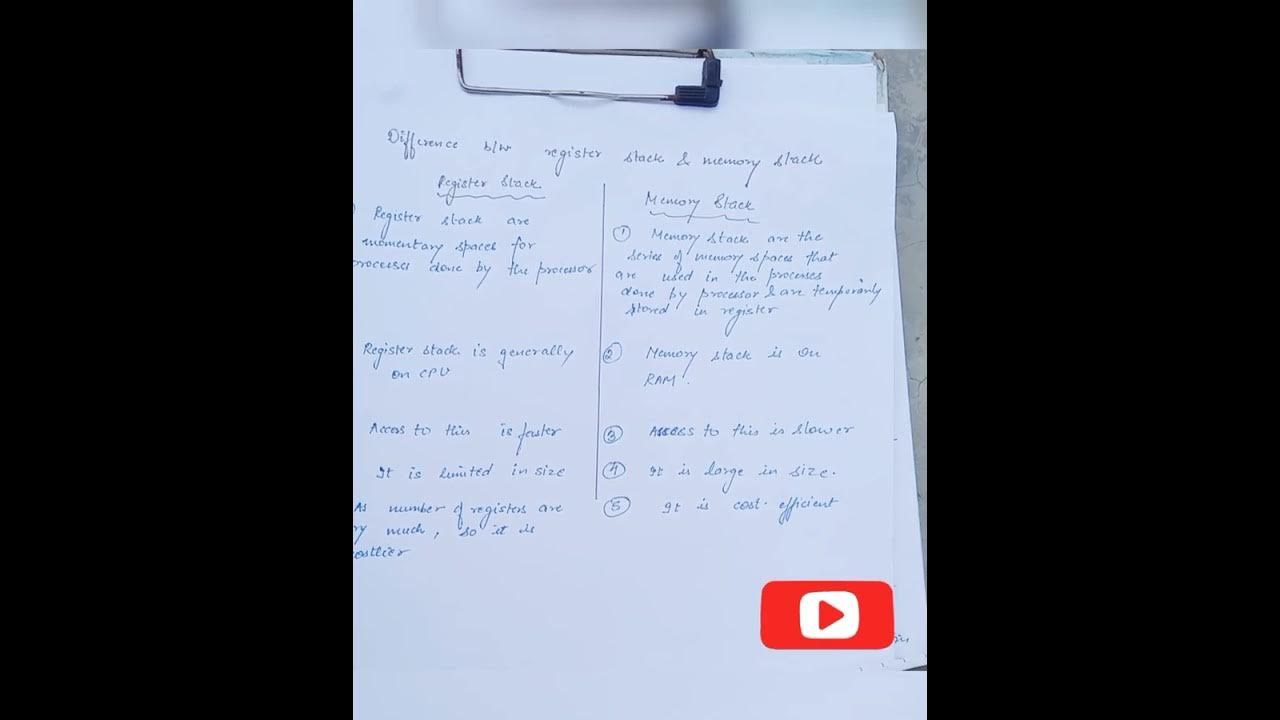 Difference b/w register stack & memory stack
Register Stack
Register stack are
momentary spaces for
processes done by the processor
Register stack is generally
on CPU
Access to this is faster
It is limited in size
As number of registers are
ry much, so it is
costlier
Memory Stack
① Memory stack are the
series of memory spaces that
are used in the processes
done by processor & are temporarily
stored in register
② Memory stack is on
RAM.
③ Access to this is slower
④ It is large in size.
⑤ It is cost-efficient